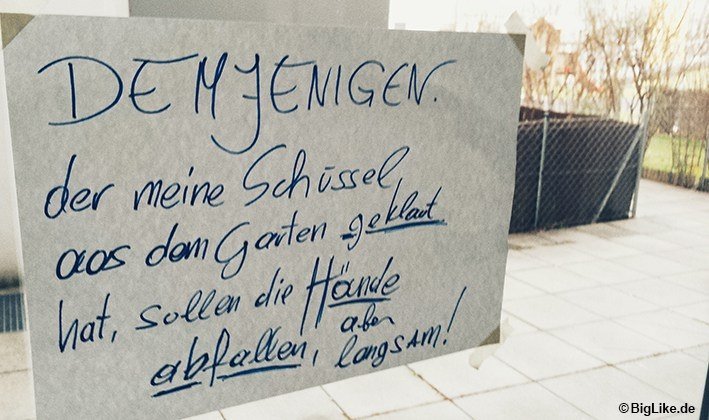 DEMJENIGEN.
der meine Schüssel
aus dem Garten geklaut
hat, sollen die Hände
abfallen, aber
langsam!
©BigLike.de